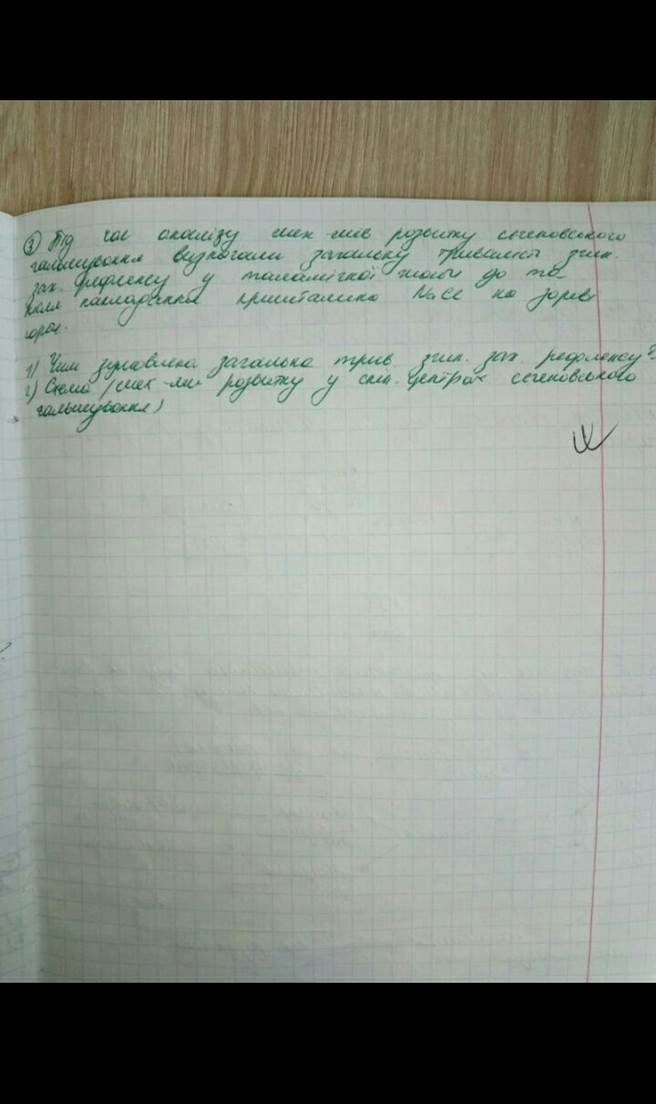 ③ Під час аналізу мех-мів розвитку сеченовського
гальмування визначали загальну тривалість згин.
зах. рефлексу у таламічної жаби до та
після накладання кристалика NaCl на зорові
горби.
1) Чим зумовлена загальна трив. згин. зах. рефлексу?
2) Схема (мех-ми розвитку у спин. центрах сеченовського
гальмування)